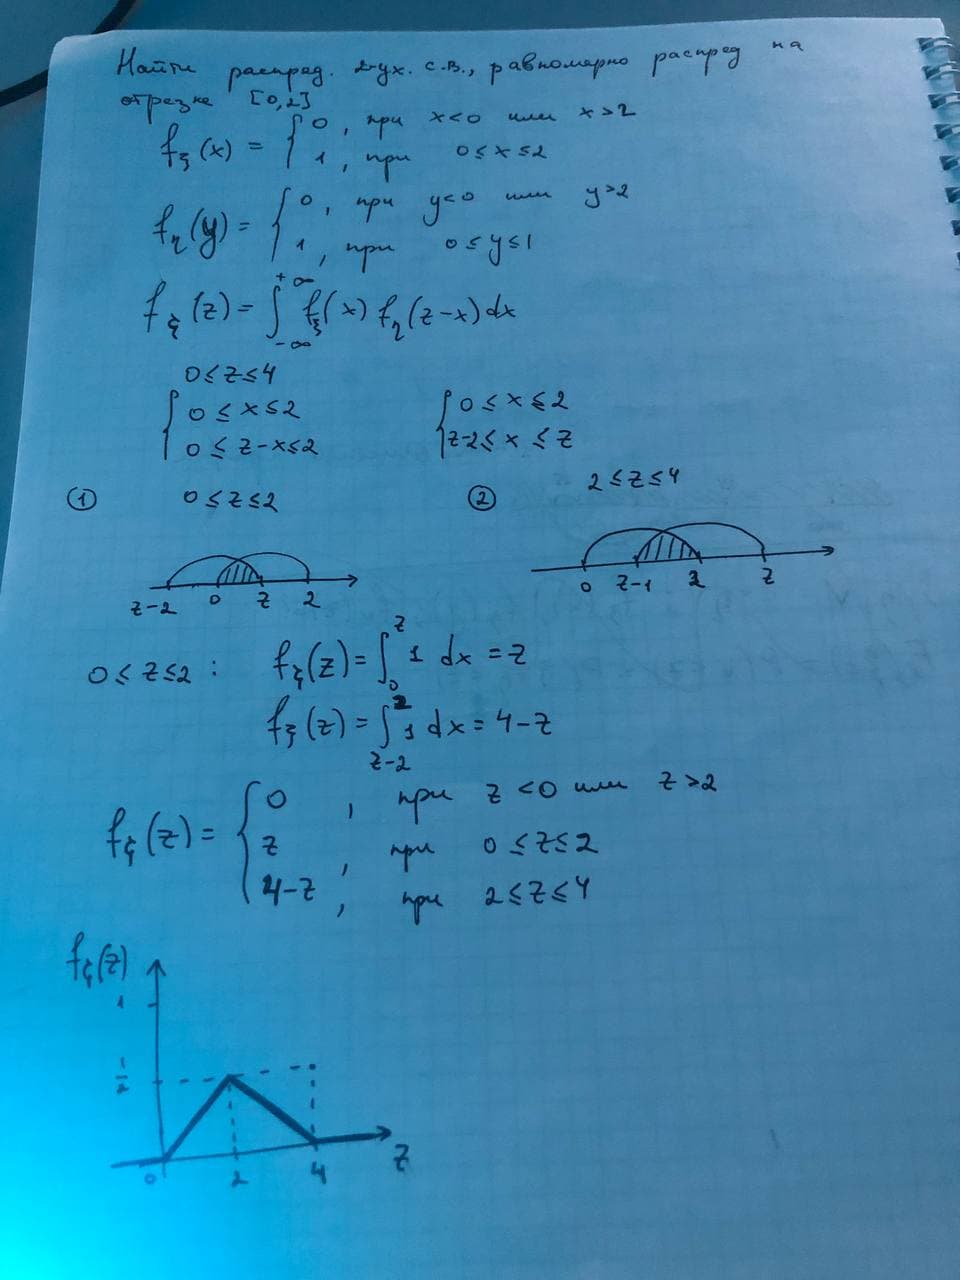 Найти распред. 2-ух. с.в., равномерно распред на
отрезке [0,2]
f_ξ(x) = { 0, при x<0 или x>2
1, при 0≤x≤2
f_η(y) = { 0, при y<0 или y>2
1, при 0≤y≤1
f_ζ(z) = ∫_{-∞}^{+∞} f_ξ(x) f_η(z-x)dx
0≤z≤4
{ 0≤x≤2
0≤z-x≤2
{ 0≤x≤2
z-2≤x≤z
① 0≤z≤2
② 2≤z≤4
z-2 0 z 2
0 z-1 2 z
0≤z≤2: f_ζ(z) = ∫_0^z 1 dx = z
f_ξ(z) = ∫_{z-2}^2 1 dx = 4-z
f_ζ(z) = { 0, при z<0 или z>2
z, при 0≤z≤2
4-z, при 2≤z≤4
f_ζ(z)
1
1/2
0 2 4 z